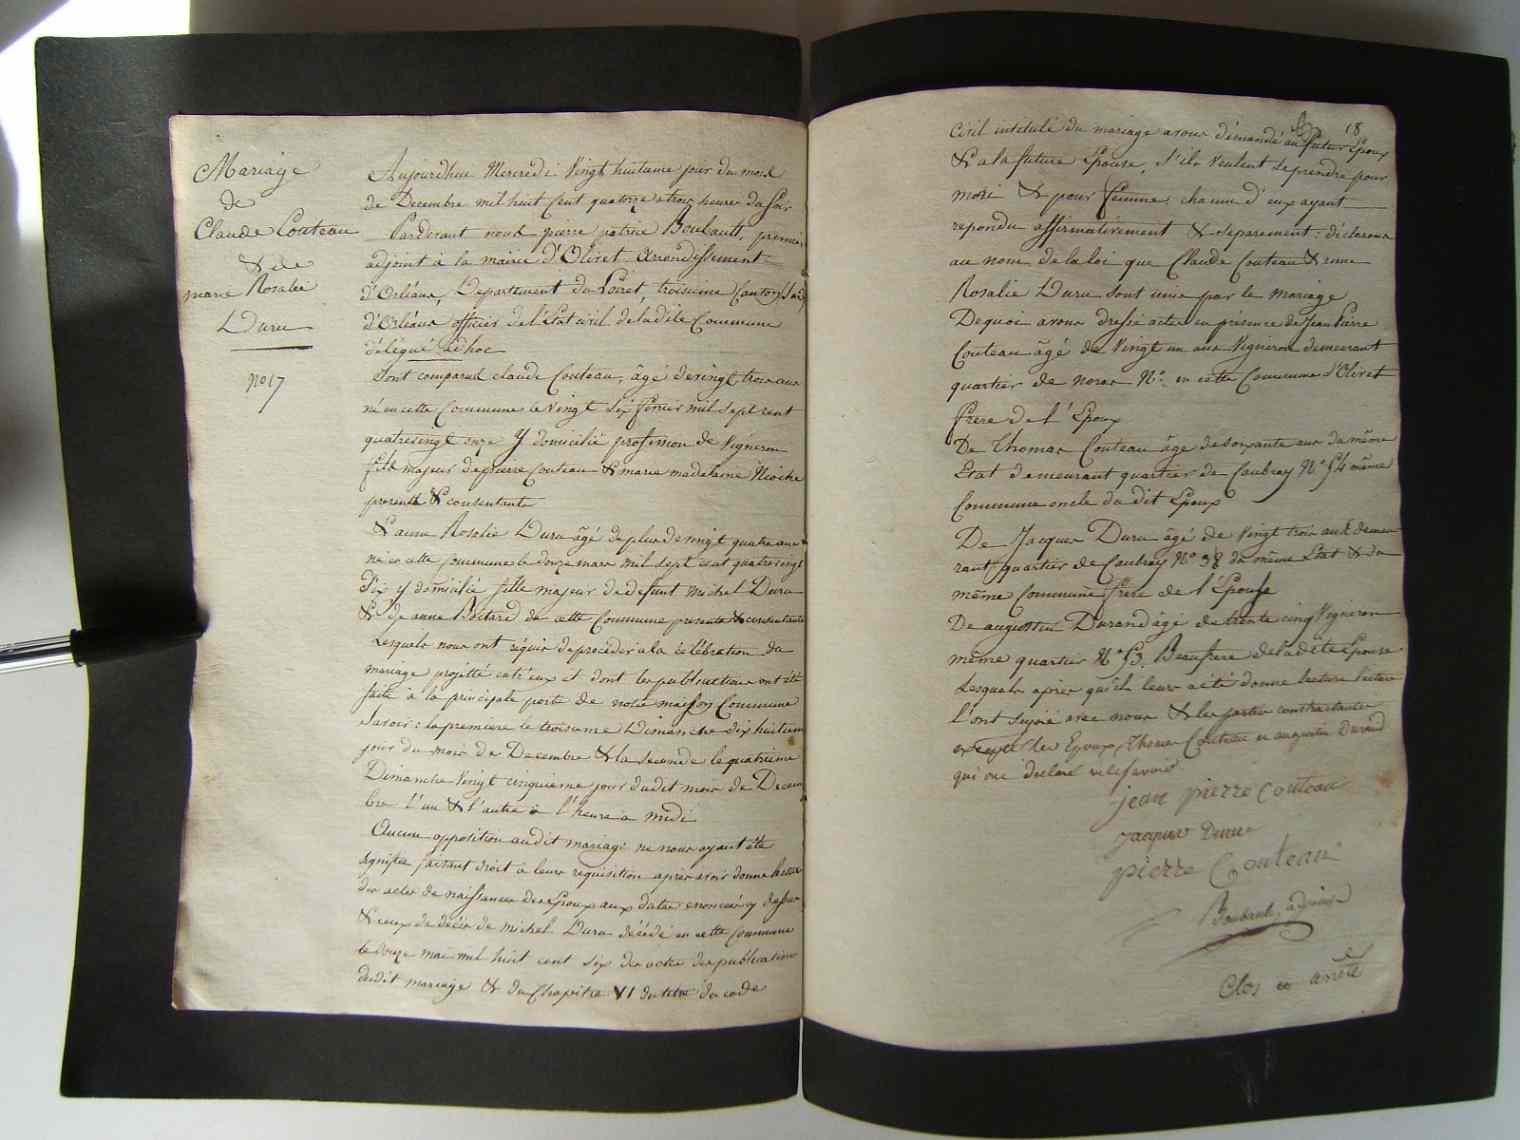 Mariage
de
Claude Couteau
& de
marie Rosalie
Duru
No 17
Aujourdhui Mercredi Vingt huitieme jour du mois
de Decembre mil huit Cent quatorze a trois heures du soir
Pardevant nous pierre patrice Boubault, premier
adjoint à la mairie d'Olivet Arrondissement
d'Orléans, Departement du Loiret, troisieme Canton Sud
d'Orléans officier de l'Etat civil de la dite Commune
délégué ad hoc
Sont comparus claude Couteau, âgé de vingt trois ans
né en cette Commune le Vingt six fevrier mil sept cent
quatrevingt onze y domicilié profession de Vigneron
fils majeur de pierre Couteau & marie madelaine Nioche
presents & consentants
& anne Rosalie Duru âgé de plus de vingt quatre ans
né en cette Commune le douze mars mil sept cent quatrevingt
dix y domicilié fille majeur de defunt michel Duru
& de anne de cette Commune presente & consentante
Lesquels nous ont requis de proceder a la célébration du
mariage projetté entr'eux et dont les publications ont été
faite à la principale porte de notre maison Commune
Savoir : la premiere le troisieme Dimanche dix huitieme
jour du mois de Decembre & la seconde le quatrieme
Dimanche Vingt cinquieme jour dudit mois de Decem
bre l'un & l'autre à l'heure de midi
Aucune opposition audit mariage ne nous ayant été
signifiée faisant droit à leur requisition après avoir donné lecture
des actes de naissances des Epoux aux dates enoncées cy dessus
& ceux de décès de michel Duru décédé en cette Commune
le douze mai mil huit cent six des actes de publication
dudit mariage & du Chapitre VI du titre du code
18
Civil intitulé du mariage avons démandé au futur Epoux
& a la future Epouse, s'ils veulent se prendre pour
mari & pour femme, chacun d'eux ayant
repondu affirmativement & separement : déclarons
au nom de la loi que Claude Couteau & anne
Rosalie Duru sont unis par le mariage
De quoi avons dressé acte en présence de Jean Pierre
Couteau âgé de Vingt un ans Vigneron demeurant
quartier de noras No. en cette Commune d'Olivet
frere de l'Epoux
De Thomas Couteau âgé de soixante ans du même
Etat demeurant quartier de Caubray No 54 même
Commune oncle du dit Epoux
De Jacques Duru âgé de Vingt trois ans demeu
rant quartier de Caubray No 38 du même Etat & du
même Commune frere de l'Epouse
De augustin Durand âgé de trente cinq Vigneron
même quartier No 53. Beaufrere de la dite Epouse
Lesquels après qu'il leur a été donné lecture l'acte
l'ont signé avec nous & les parties contractantes
excepté les Epoux, Thomas Couteau et augustin Durand
qui ont declaré ne le savoir
jean pierre Couteau
jacques Duru
pierre Couteau
Boubault, adjoint
Clos et arrêté